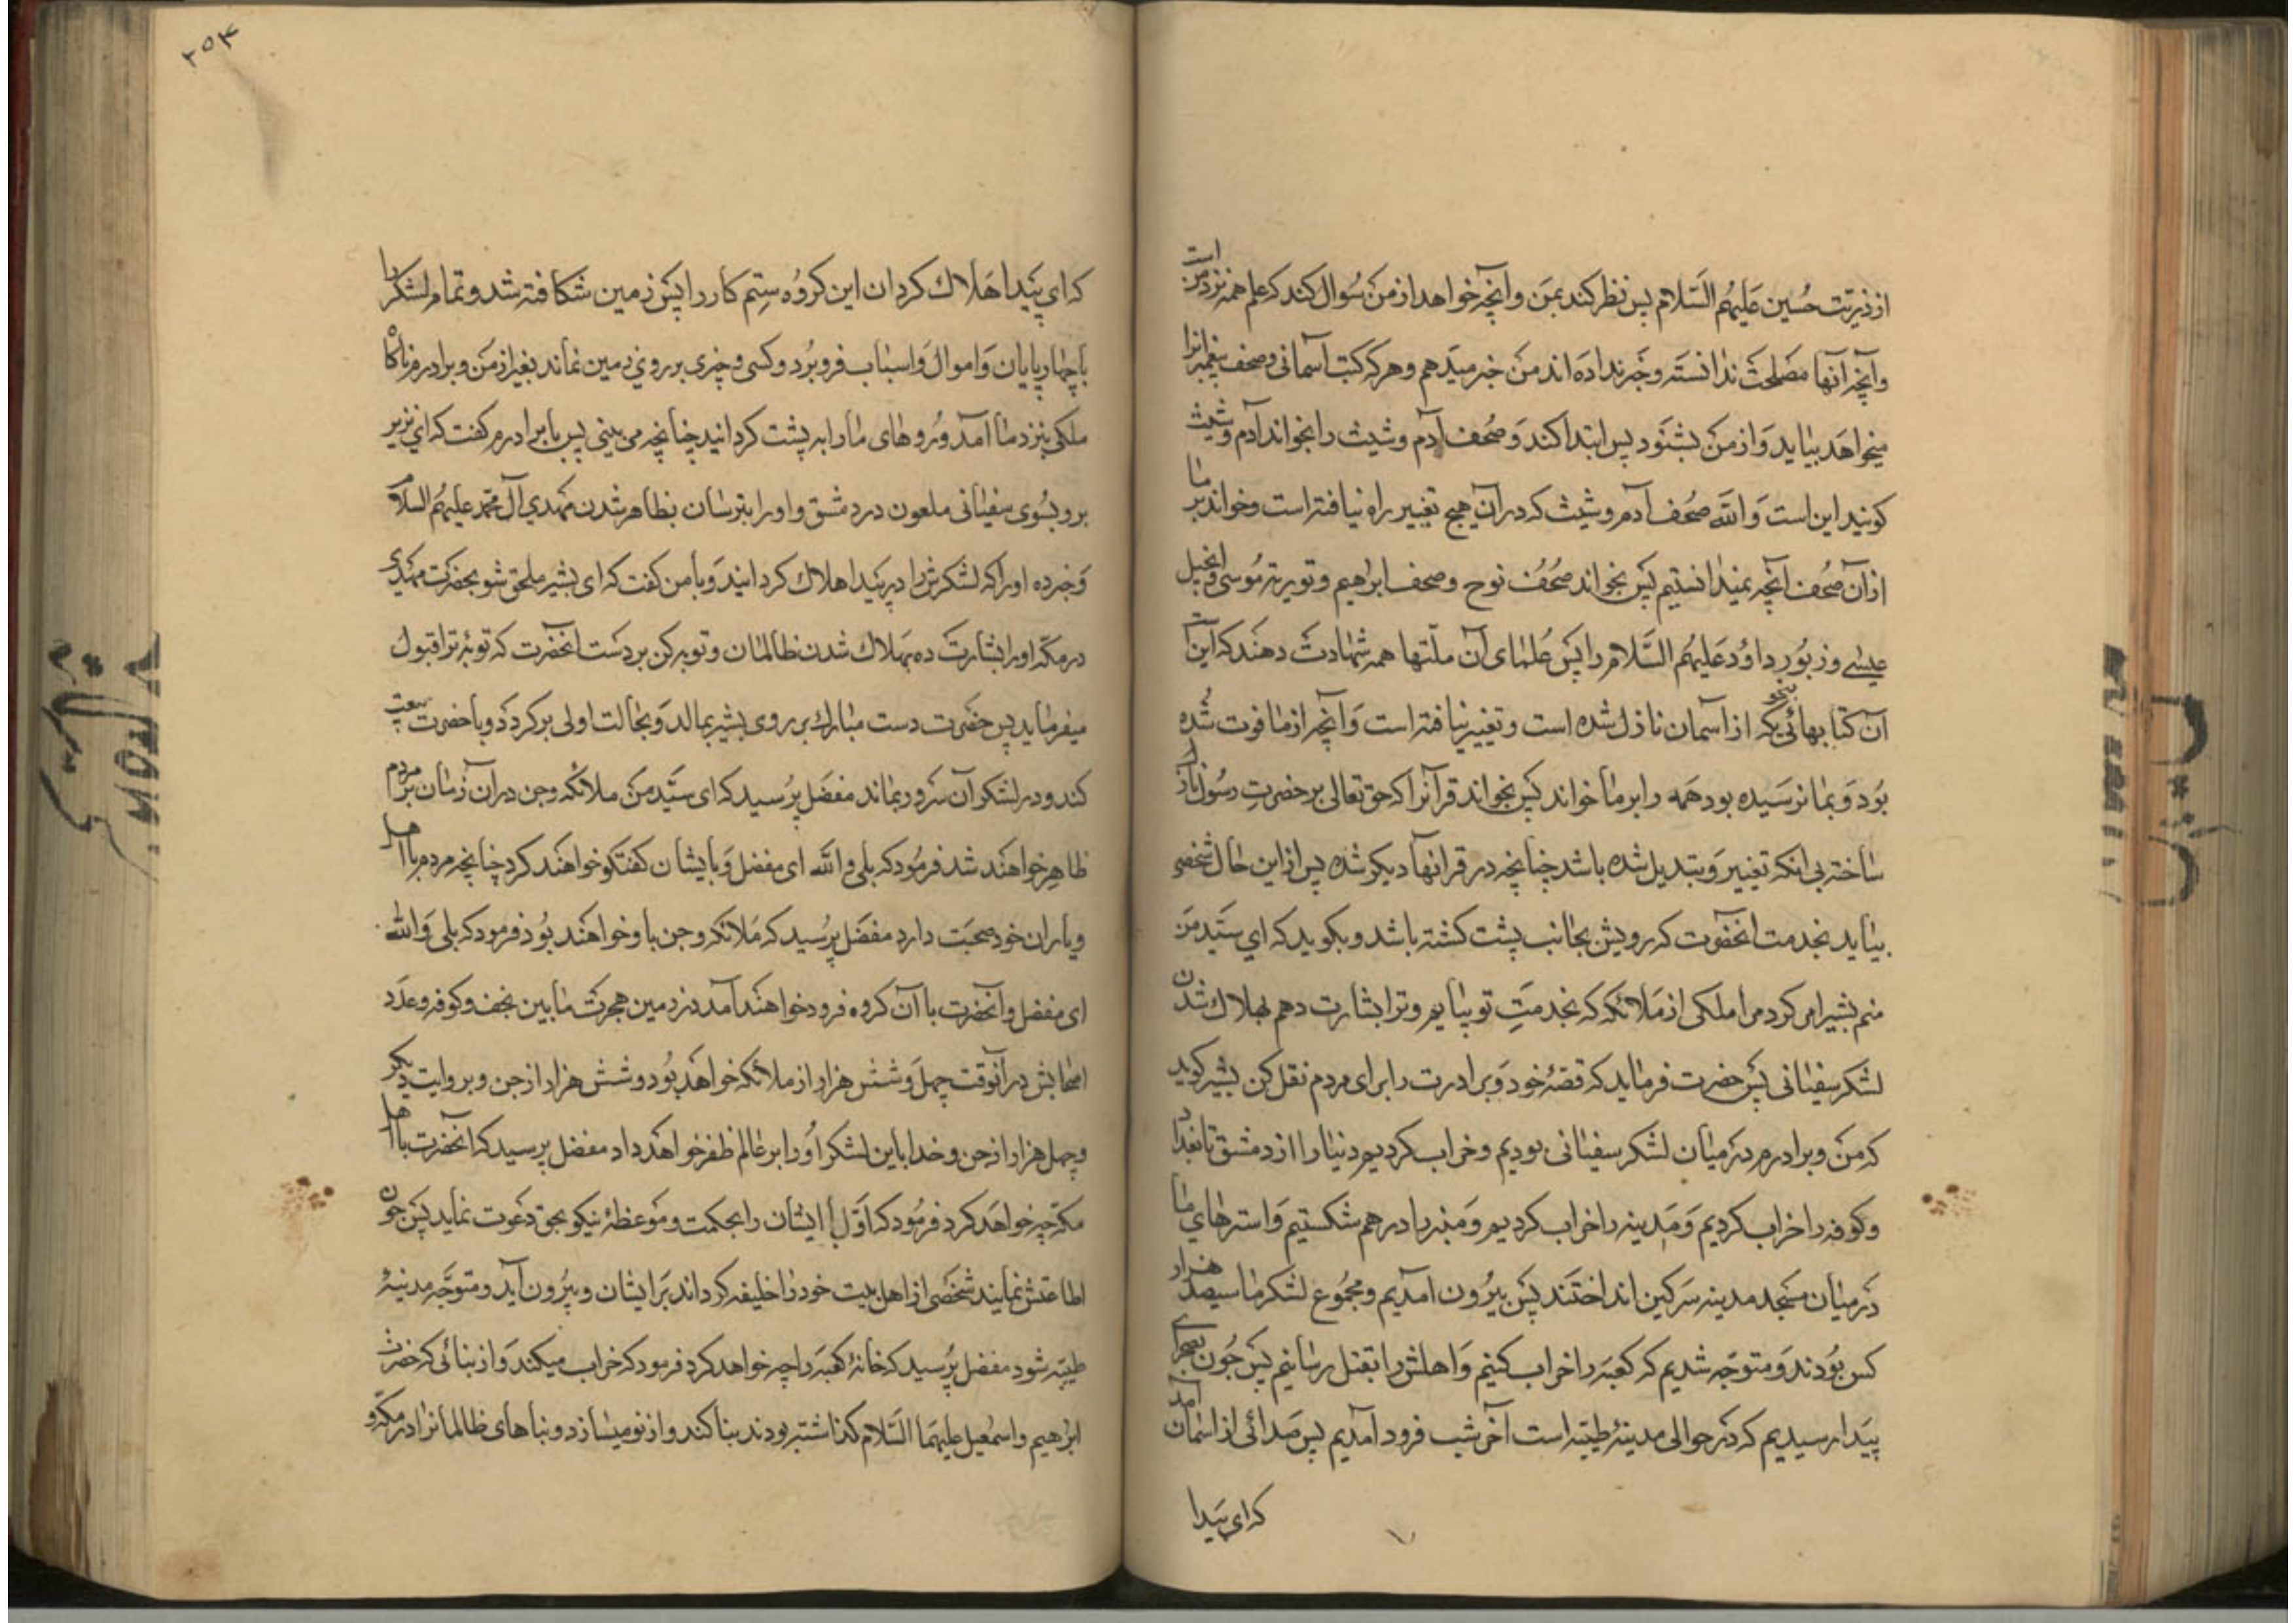 از ذریّت حُسین عَلَیهُم السَّلام پس نظر کند بمَن و آنچه خواهد از من سُوال کند که علم همه نزد من است
و آنچه آنها مصلحت ندانسته و خبر نداده اند من خبر میدهم و هر که کتب آسمانی و صحف پیغمبرانرا
میخواهد بیاید و از من بشنود پس ابتدا کند و صُحف آدم و شیث را بخواند آدم و شیث
کویند این است و الله صُحف آدم و شیث که در آن هیچ تغییر راه نیافته است و خواند بر ما
از آن صُحف آنچه نمیدانستیم پس بخواند صُحُف نوح و صحف ابراهیم و توریة موسی و انجیل
عیسی و زبُور داوُد عَلَیهُم السَّلام را پس عُلمای آن ملّتها همه شهادت دهند که این است
آن کتابهائی بنحویکه از آسمان نازل شده است و تغییر نیافته است و آنچه از ما فوت شده
بُود و بما نرسیده بود همه را بر ما خواند پس بخواند قرآنرا که حق تعالی بر حضرتِ رسُول نازل
ساخته بی انکه تغییر و تبدیل شده باشد چنانچه در قرانها دیکر شده پس از این حال شخصی
بیاید بخدمت انحضرت که رویش بجانب پشت کشته باشد و بکوید که ای سیّد من
منم بشیر امر کرد مرا ملکی از ملائکه که بخدمتِ تو بیایم و ترا بشارت دهم بهلاک شدن
لشکر سفیانی پس حضرت فرماید که قصّهٔ خود و برادرت را برای مردم نقل کن بشیر کوید
که من و برادرم در میان لشکر سفیانی بودیم و خراب کردیم دنیا را از دمشق تا بغداد
و کوفه را خراب کردیم و مدینه را خراب کردیم و منبر را درهم شکستیم و استرهای ما
در میان مسجد مدینه سرکین انداختند پس بیرُون امدیم و مجمُوع لشکر ما سیصد هزار
کس بُودند و متوجّه شدیم که کعبه را خراب کنیم و اهلش را بقتل رسانیم پس چُون بصحرای
بیدا رسیدیم که در حوالی مدینهٔ طیّبه است آخر شب فرود آمدیم پس صدائی از اسمان آمد
که ای بیدا
۲۵۴
که ای بَیدا هَلاک کردان این کرُوه سِتم کار را پس زمین شکافته شد و تمام لشکر را
با چهارپایان و اموال و اسباب فرو بُرد و کسی و چیزی بر روی زمین نماند بغیر از من و برادرم ناکاه
ملکی بنزد ما آمد و رُوهای ما را به پشت کردانید چنانچه می بینی پس با برادرم کفت که ای نذیر
برو بسُوی سفیانی ملعون در دمشق و او را بترسان بظاهر شدن مهدی آل محمّد علیهُم السلام
و خبر ده او را که لشکرش را در بیدا هلاک کردانیدند و با من کفت که ای بشیر ملحق شو بحضرت مهدی
در مکّه او را بشارت ده بهلاک شدن ظالمان و توبه کن بر دست انحضرت که توبهٔ ترا قبول
میفرماید پس حضرت دست مبارک بر روی بشیر بمالد و بحالت اولی برکردد و با حضرت بیعت
کند و در لشکر آن سَرور بماند مفضّل پُرسید که ای سیّد من ملائکه و جن در آن زمان بر مردم
ظاهر خواهند شد فرمُود که بلی و الله ای مفضل و با یشان کفتکو خواهند کرد چنانچه مردم با اهل
و یاران خود صحبت دارد مفضّل پرُسید که ملائکه و جن با او خواهند بُود فرمود که بلی و الله
ای مفضل و آنحضرت با آن کروه فرود خواهند آمد در زمین هجرت مابین نجف و کوفه و عدد
اصحابش در آنوقت چهل و شش هزار از ملائکه خواهد بُود و شش هزار از جن و بروایت دیکر
و چهل هزار از جن و خدا باین لشکر اُو را بر عالم ظفر خواهد داد مفضل پرسید که انحضرت با اهل
مکّه چه خواهد کرد فرمُود که اوّل ایشان را بحکمت و موعظهٔ نیکو بحق دعوت نماید پس چون
اطاعتش نمایند شخصی از اهل بیت خود را خلیفه کرداند بر ایشان و بیرُون آید و متوجّه مدینهٔ
طیّبه شود مفضل پُرسید که خانهٔ کعبه را چه خواهد کرد فرمود که خراب میکند و از بنائی که حضرت
ابراهیم و اسمعیل علیهمَا السَّلام کذاشته بودند بنا کند و از نو میسازد و بناهای ظالمانرا در مکّه و